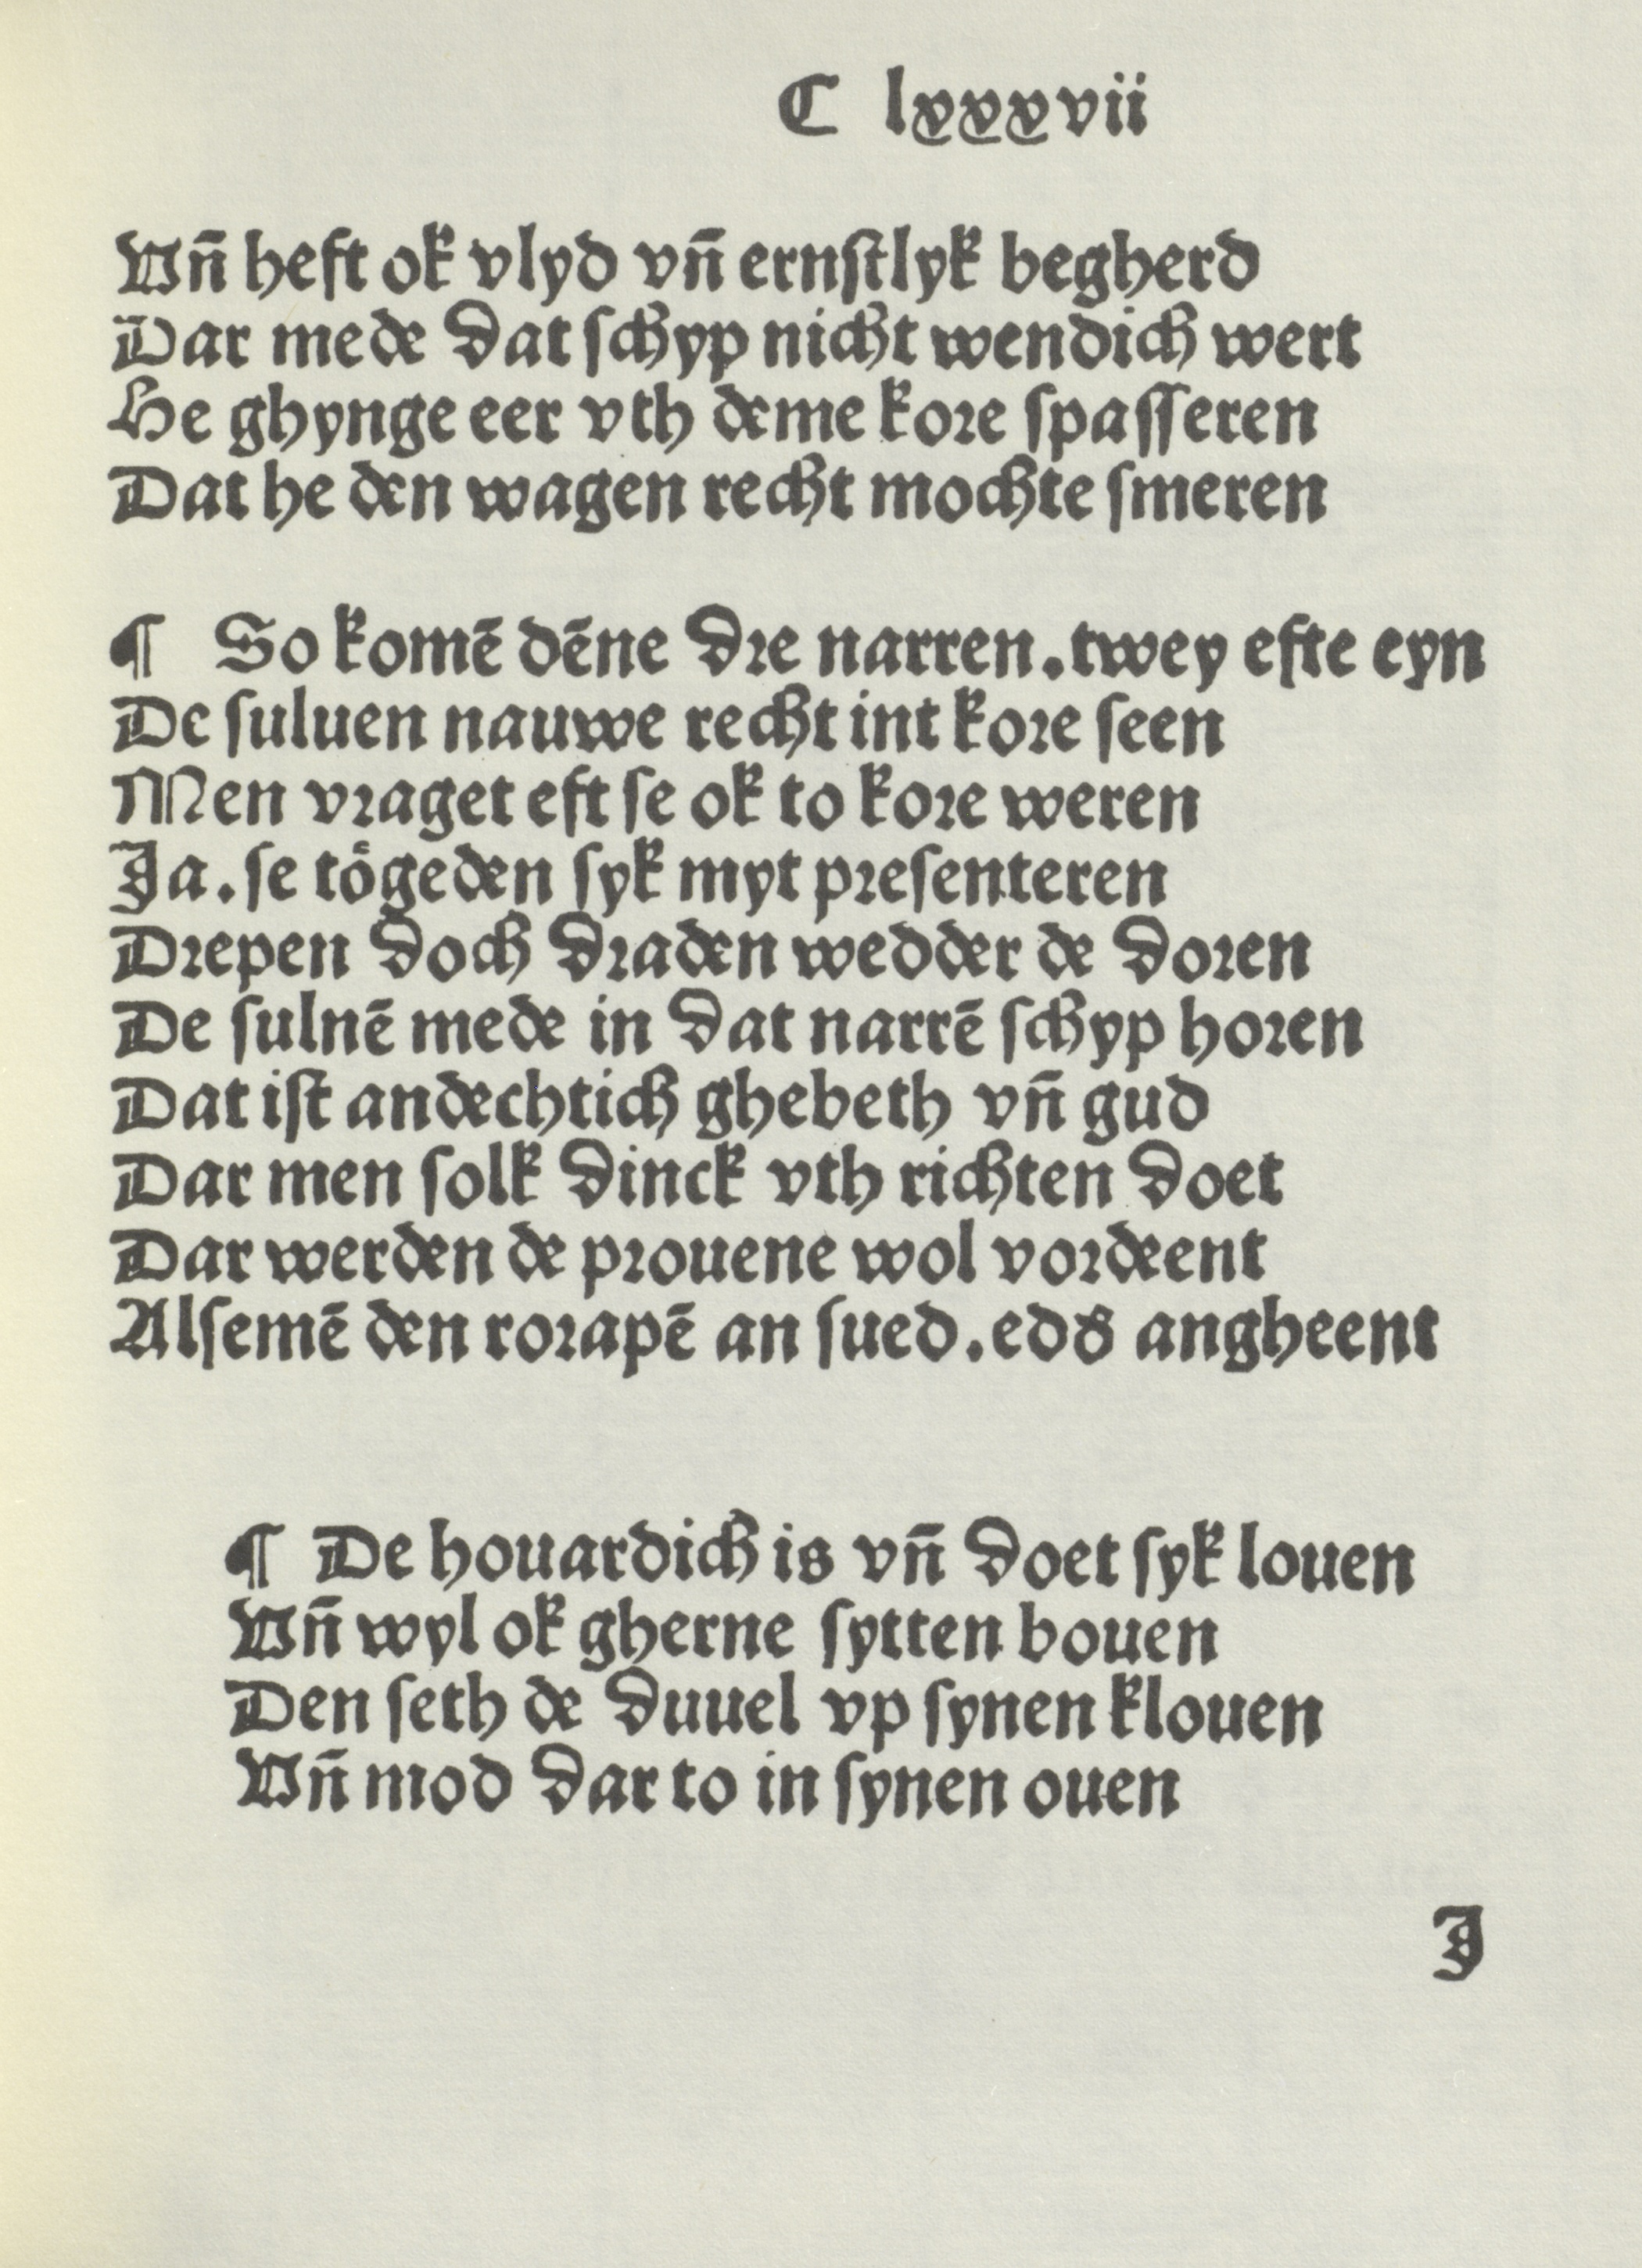 C lxxxvii
Vñ heft ok vlyd vñ ernstlyk begherd
Dar mede dat schyp nicht wendich wert
He ghynge eer vth deme kore spasseren
Dat he den wagen recht mochte smeren
¶ So komē dēne dre narren.twey efte eyn
De suluen nauwe recht int kore seen
Men vraget eft se ok to kore weren
Ja.se toͤgeden syk myt presenteren
Drepen doch draden wedder de doren
De sulnē mede in dat narrē schyp horen
Dat ist andechtich ghebeth vñ gud
Dar men solk dinck vth richten doet
Dar werden de prouene wol vordeent
Alsemē den rorapē an sued.edś angheent
¶ De houardich is vñ doet syk louen
Vñ wyl ok gherne sytten bouen
Den seth de duuel vp synen klouen
Vñ mod dar to in synen ouen
J